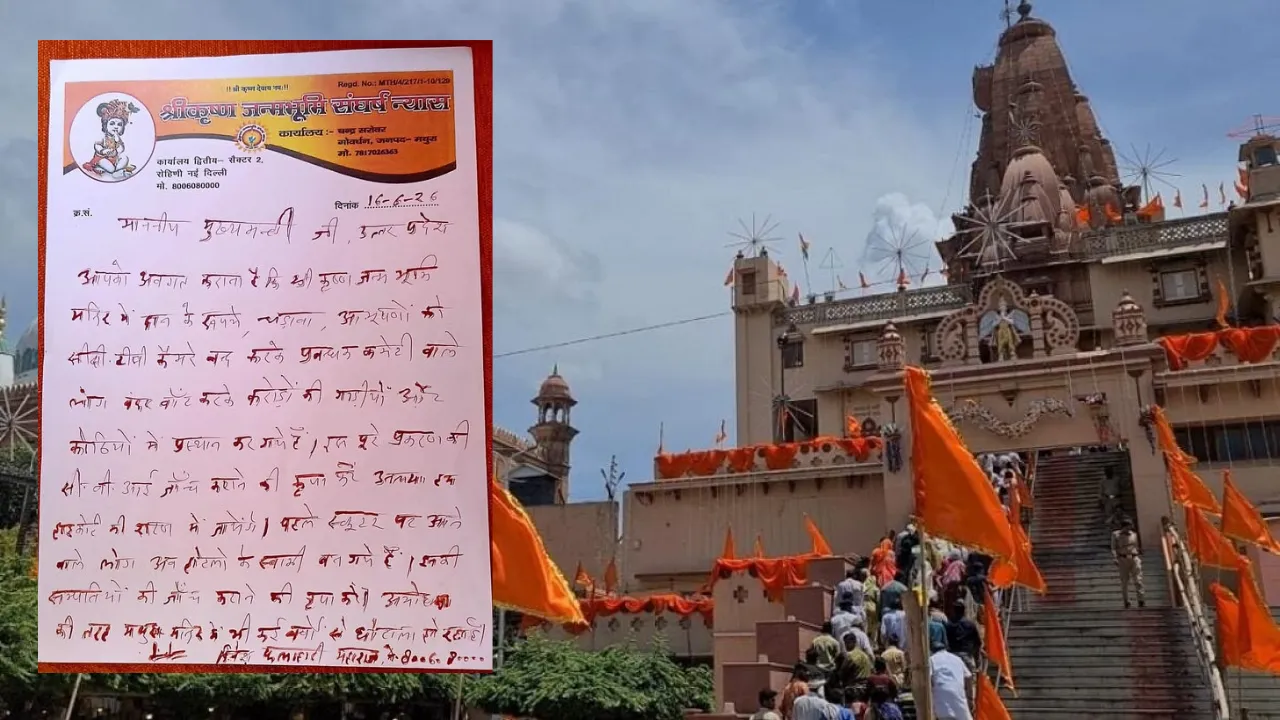 !! श्री कृष्ण देवाय नमः !!
Regd. No.: MTH/4/217/1-10/120
श्रीकृष्ण जन्मभूमि संघर्ष न्यास
कार्यालय :- चन्द्र सरोवर
गोवर्धन, जनपद- मथुरा
मो. 7817026363
कार्यालय द्वितीय- सैक्टर 2,
रोहिणी नई दिल्ली
मो. 8006080000
क्र.सं.
दिनांक 16-6-26
माननीय मुख्यमन्त्री जी, उत्तर प्रदेश
आपको अवगत कराना है कि श्री कृष्ण जन्म भूमि
मन्दिर में दान के रूपये, चढ़ावा, आभूषणों को
सीसी.टीवी कैमरे बन्द करके प्रबन्धक कमेटी वाले
लोग बंदर बाँट करके करोड़ों की गाड़ीयों और
कोठियों में प्रस्थान कर गये हैं। इस पूरे प्रकरण की
सी.बी.आई जाँच कराने की कृपा करें अन्यथा हम
हाइकोर्ट की शरण में जायेंगे। पहले स्कूटर पर आने
वाले लोग अब होटलों के स्वामी बन गये हैं। इनकी
सम्पतियों की जाँच कराने की कृपा करें। अयोध्या
की तरह मथुरा मन्दिर में भी कई वर्षों से घोटाला हो रहा है।
दिनेश फलाहारी महाराज, मो-8006080000